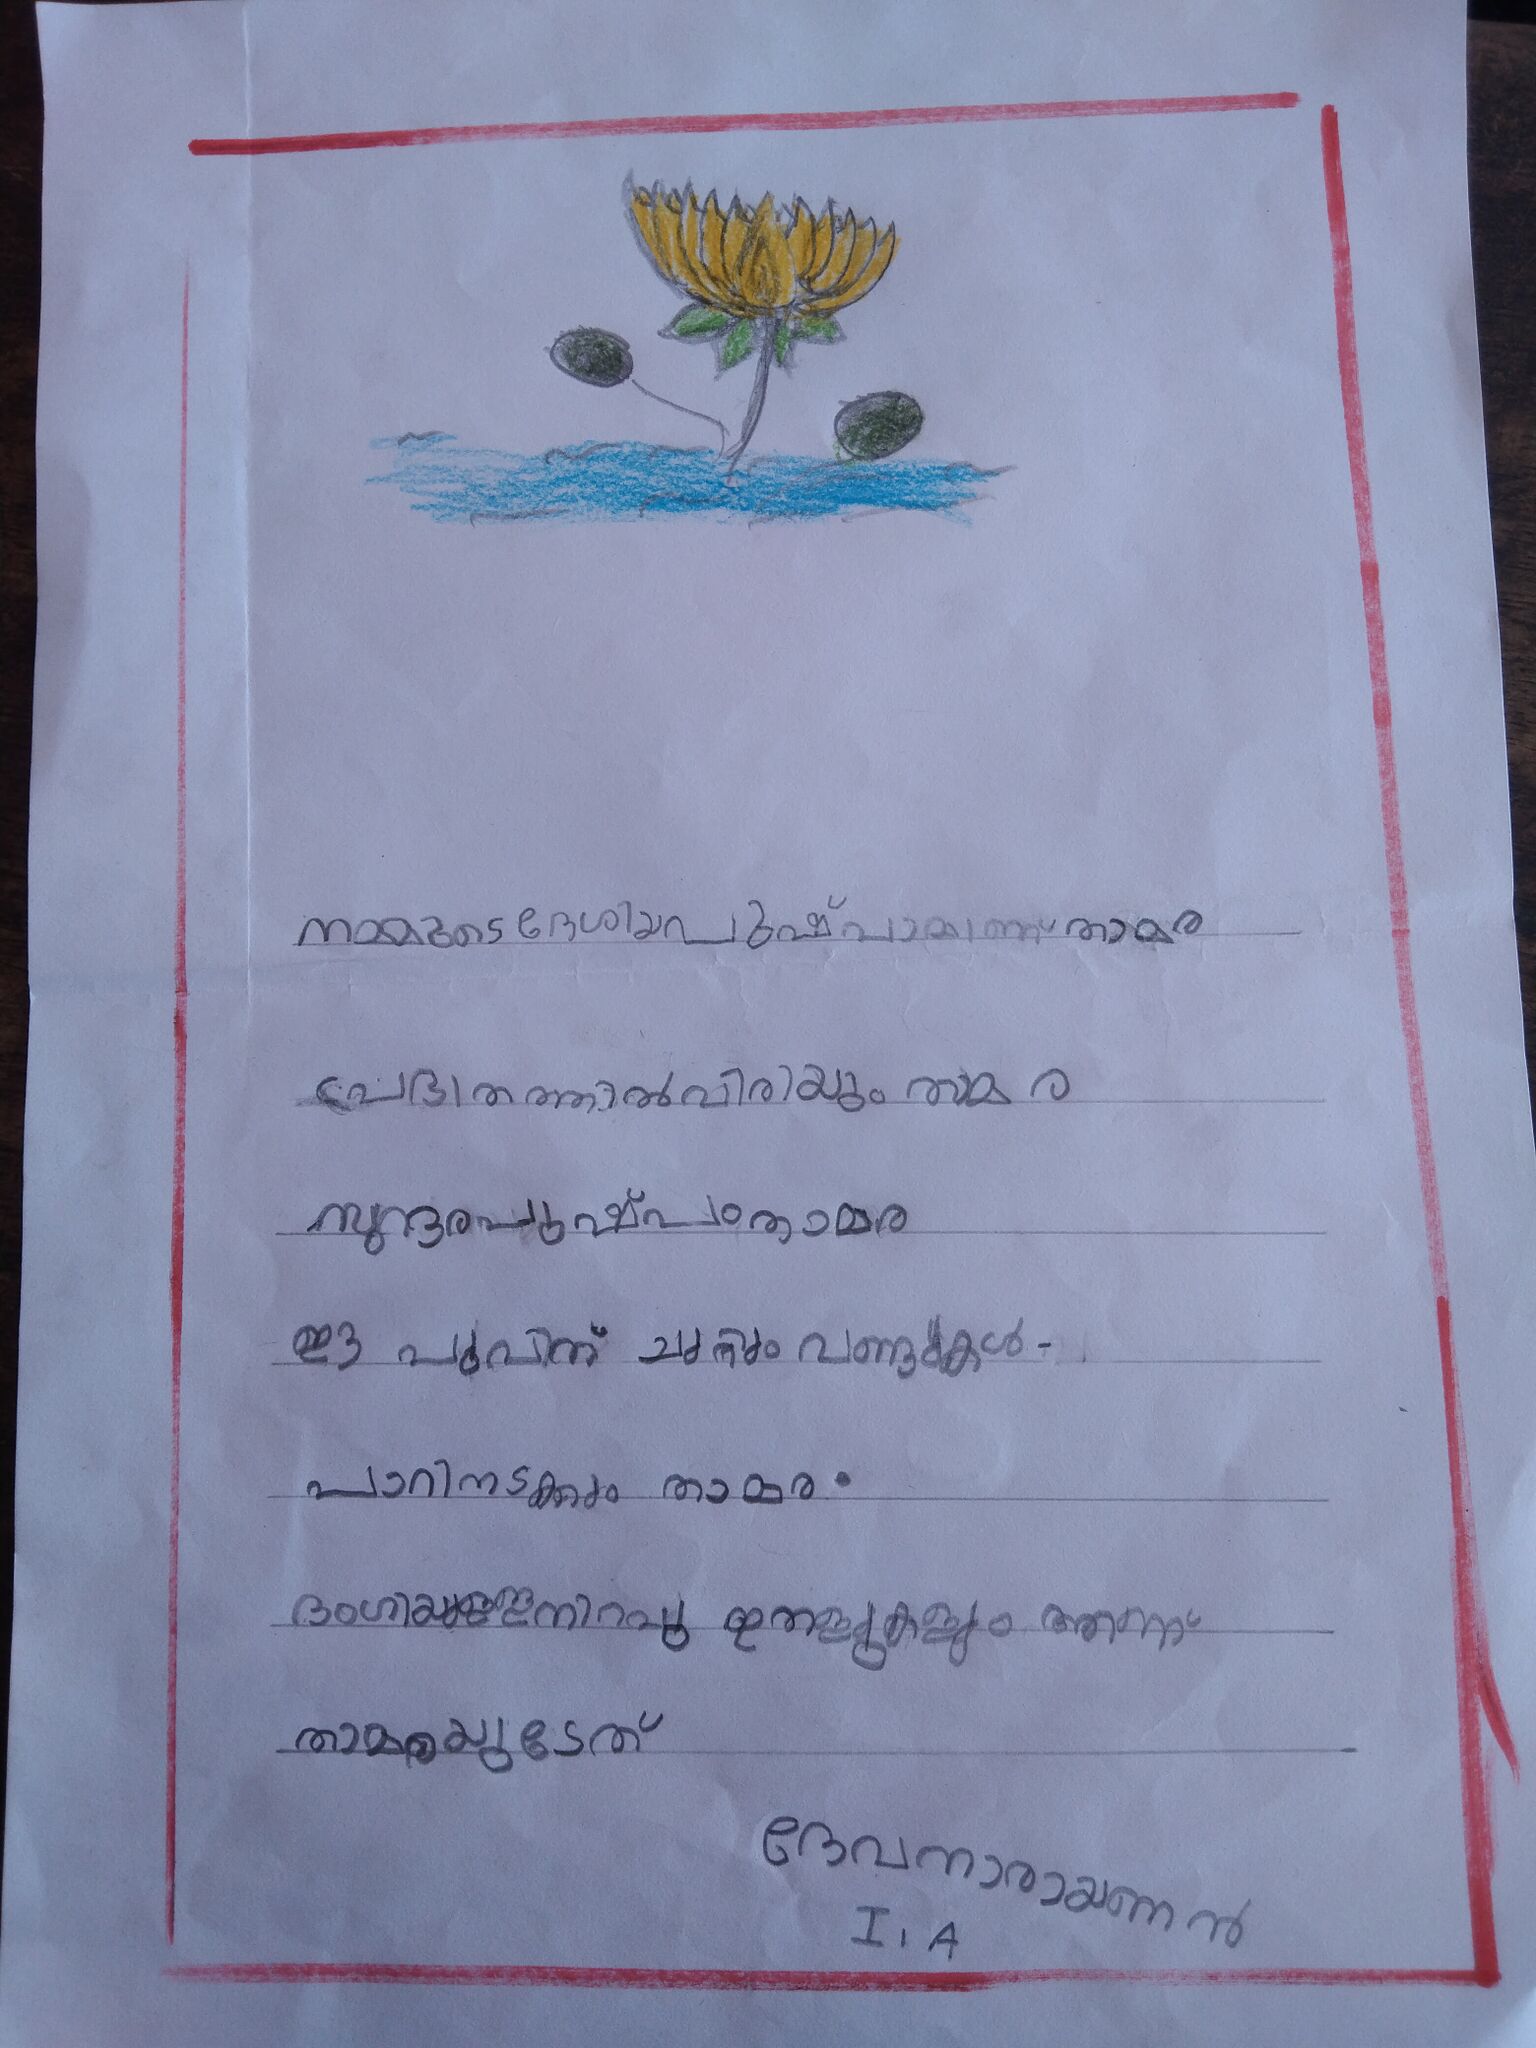 നമ്മുടെ ദേശിയ പുഷ്പമാണ് താമര
പ്രഭാതത്താൽ വിരിയും താമര
സുന്ദരപുഷ്പം താമര
ഈ പൂവിന് ചുറ്റും വണ്ടുകൾ-
പാറിനടക്കും താമര.
ഭംഗിയുള്ള നിറവും ഇതളുകളും ആണ്
താമരയുടേത്
ദേവനാരായണൻ
I, A